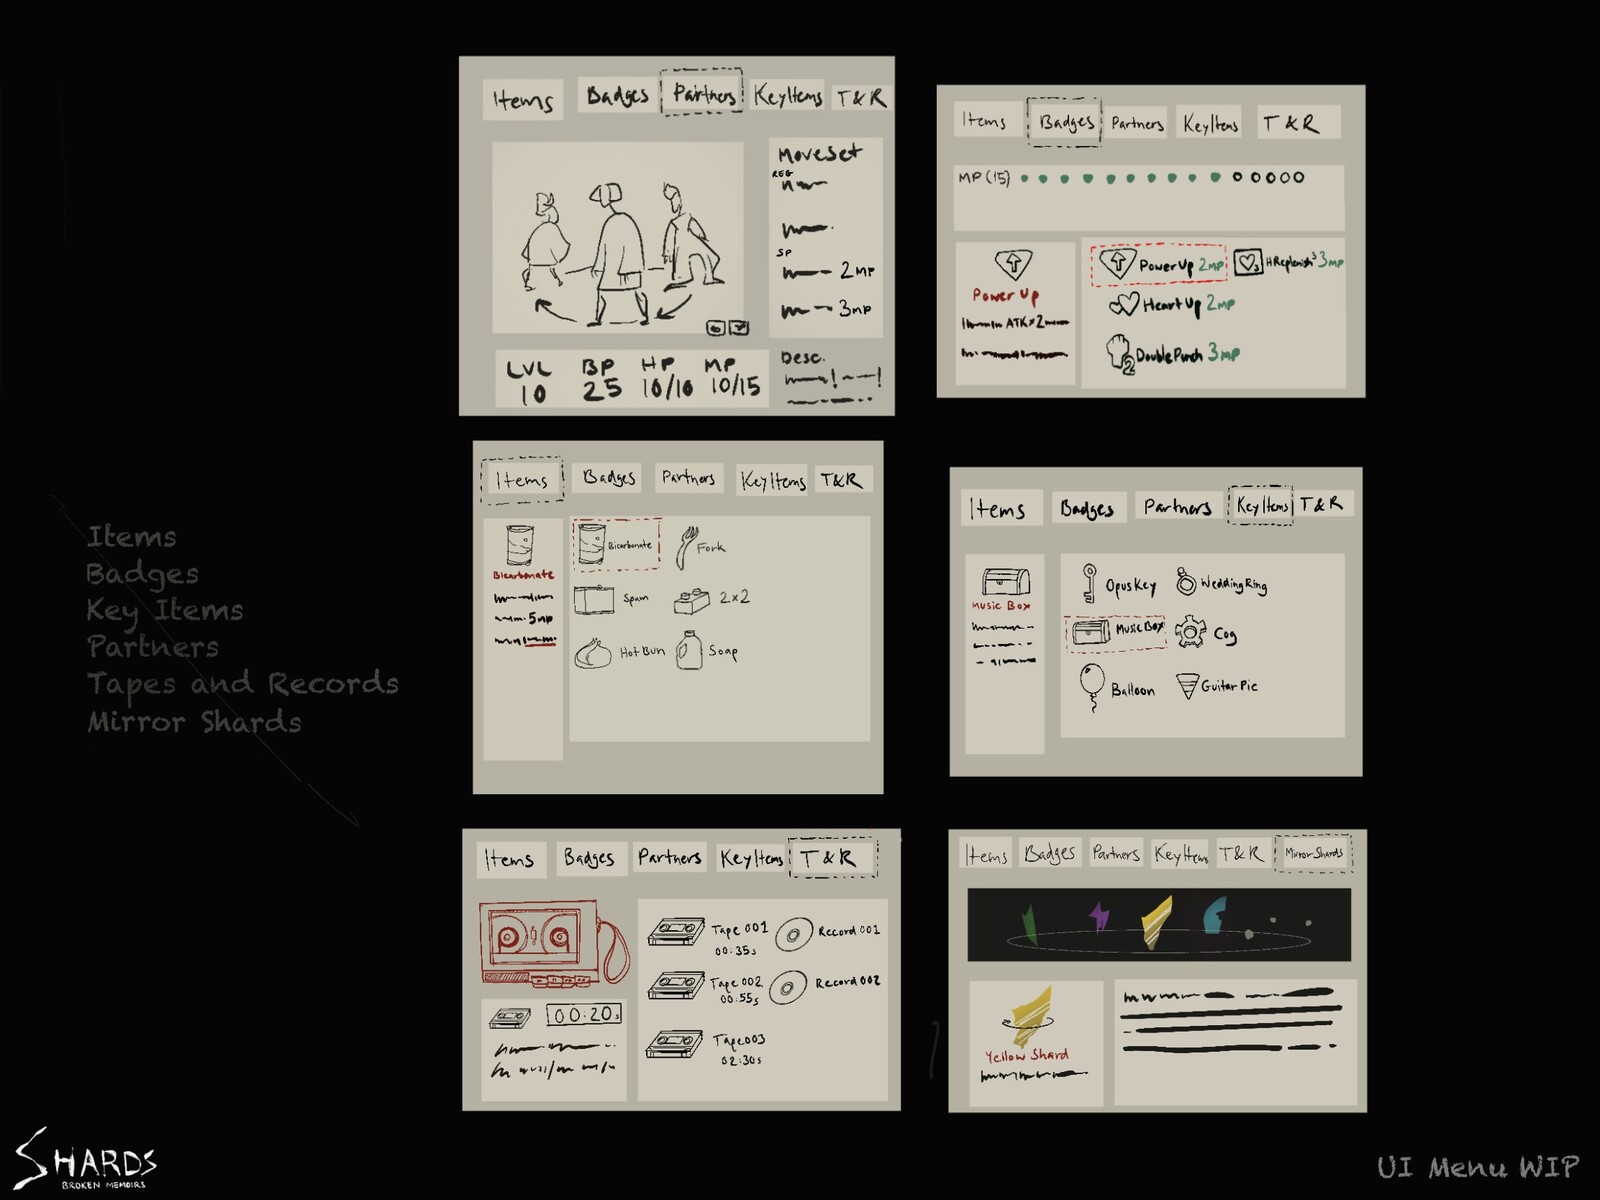 Items Badges Partners KeyItems T&R
Moveset
REG
SP
2MP
3MP
LVL BP HP MP
10 25 10/10 10/15
Desc.
Items Badges Partners KeyItems T&R
MP (15)
Power Up
ATK×2
PowerUp 2MP
HReplenish³ 3MP
HeartUp 2MP
2
DoublePunch 3MP
Items Badges Partners KeyItems T&R
Bicarbonate
5MP
Bicarbonate
Fork
Spam
2×2
Hot Bun
Soap
Items
Badges
Key Items
Partners
Tapes and Records
Mirror Shards
Items Badges Partners KeyItems T&R
Music Box
OpusKey
WeddingRing
MusicBox
Cog
Balloon
GuitarPic
Items Badges Partners KeyItems T&R
00:20s
Tape 001
00:35s
Record 001
Tape 002
00:55s
Record 002
Tape003
02:30s
Items Badges Partners KeyItems T&R MirrorShards
Yellow Shard
SHARDS
BROKEN MEMOIRS
UI Menu WIP